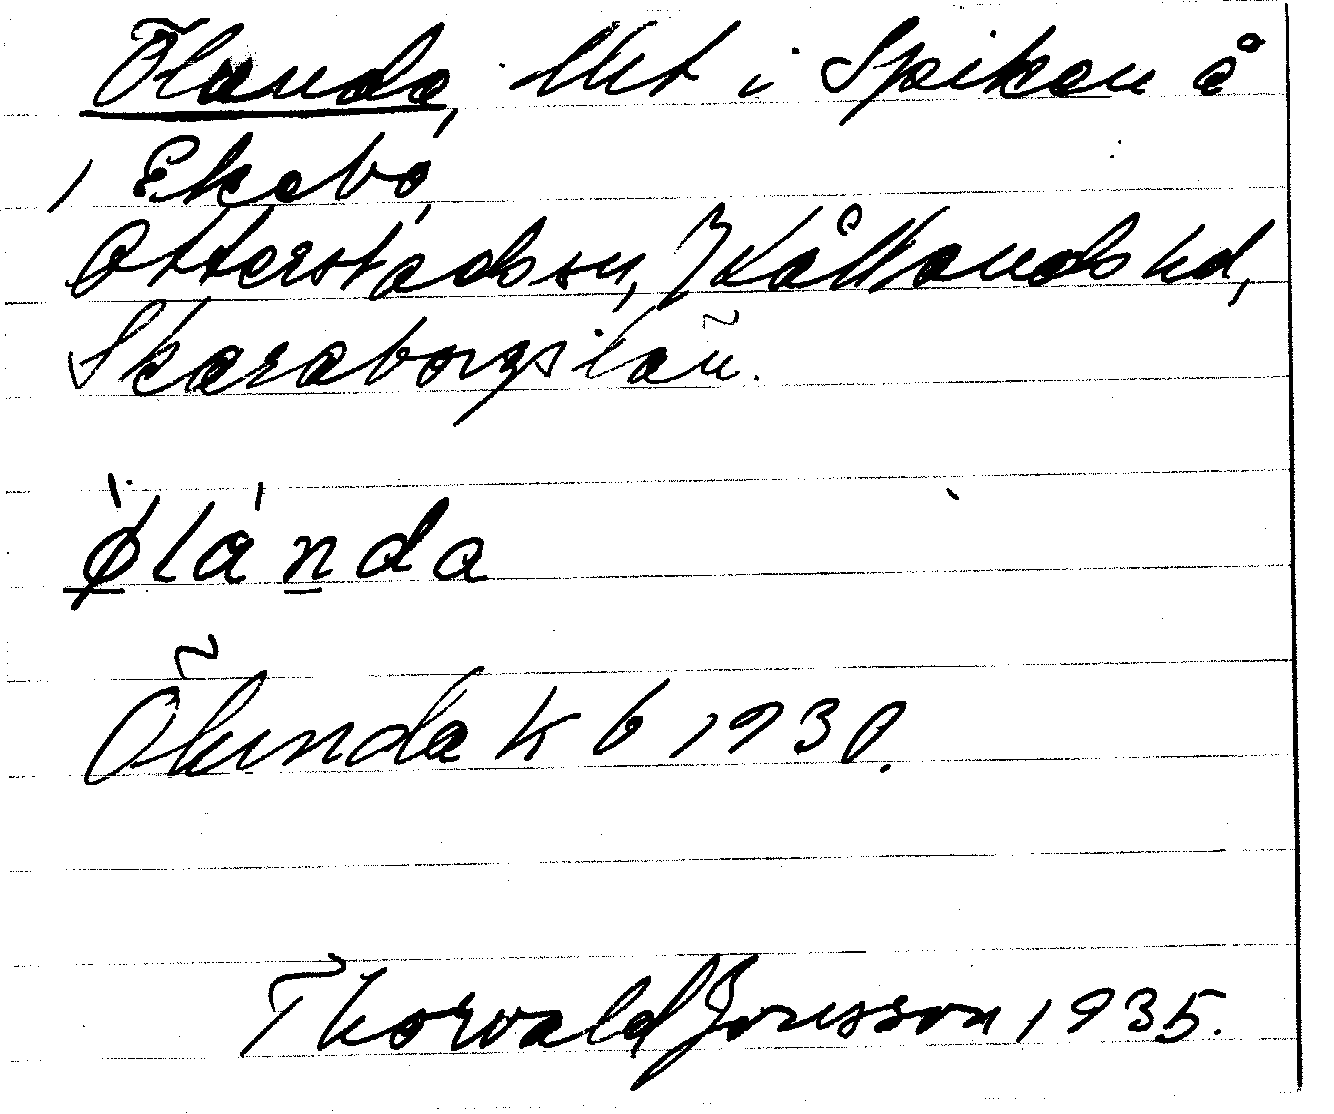 Ölanda, lht i Spiken å
, Ekebo,
Otterstads sn, Kållands hd,
Skaraborgs län.
ø̀lánda
Ölunda k b 1930.
Thorvald Jonsson, 1935.